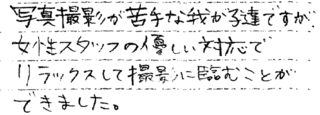 写真撮影が苦手な我が子達ですが、
女性スタッフの優しい対応で
リラックスして撮影に臨むことが
できました。